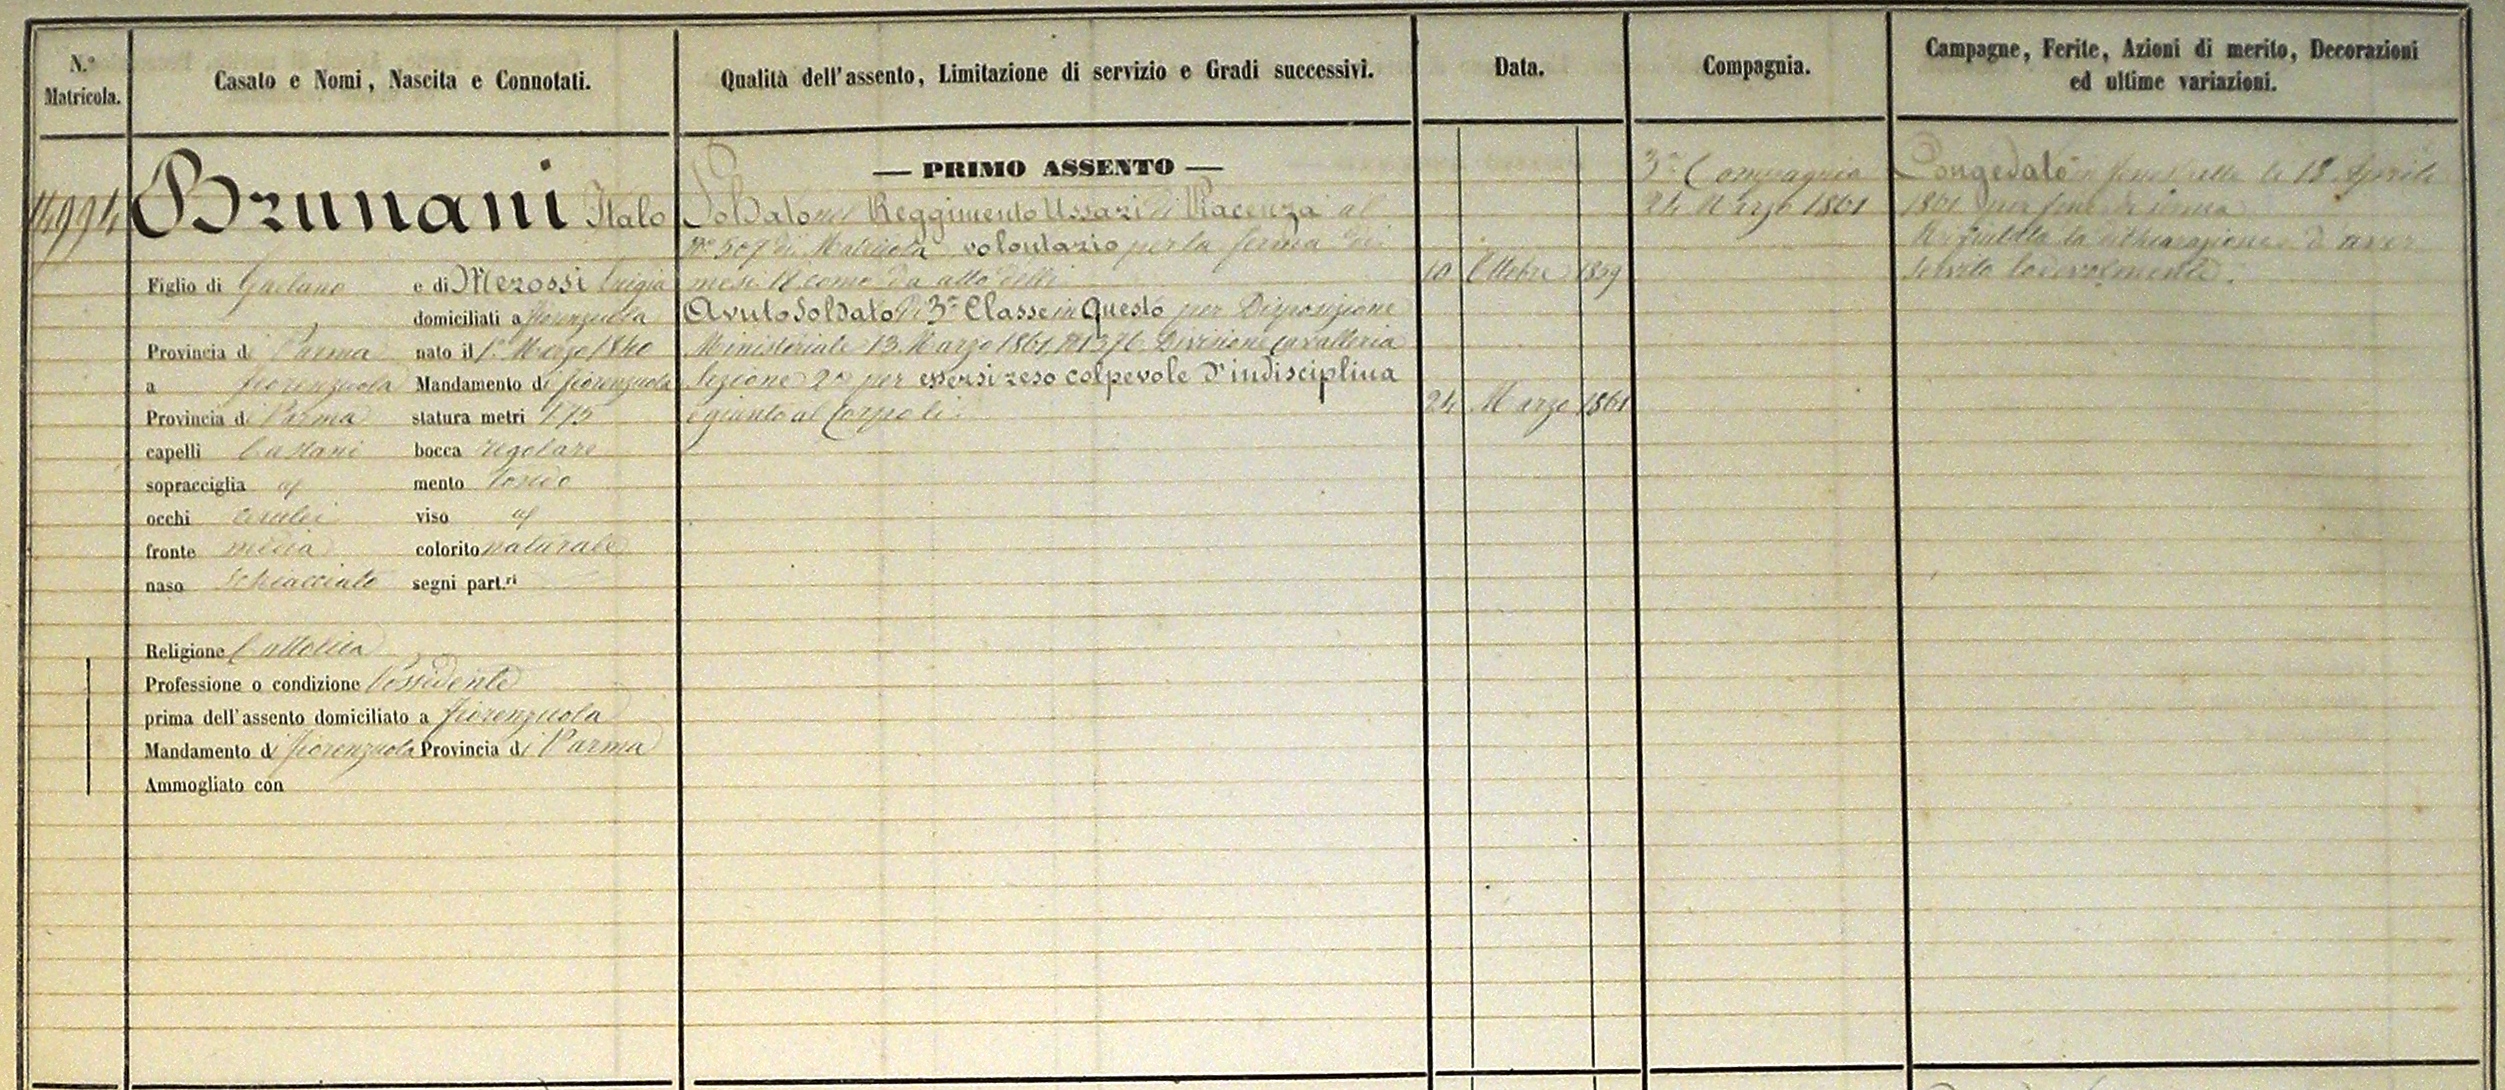 N.º Matricola.
Casato e Nomi, Nascita e Connotati.
Qualità dell'assento, Limitazione di servizio e Gradi successivi.
Data.
Compagnia.
Campagne, Ferite, Azioni di merito, Decorazioni
ed ultime variazioni.
14994
Brunani Italo
Figlio di Gaetano e di Merossi Luigia
domiciliati a fiorenzuola
Provincia di Parma nato il 1º Marzo 1840
a fiorenzuola Mandamento di fiorenzuola
Provincia di Parma statura metri 1.75
capelli Castani bocca regolare
sopracciglia id mento tondo
occhi cerulei viso id
fronte media colorito naturale
naso schiacciato segni part.ri
Religione Cattolica
Professione o condizione Possidente
prima dell'assento domiciliato a fiorenzuola
Mandamento di fiorenzuola Provincia di Parma
Ammogliato con
— PRIMO ASSENTO —
Soldato nel Reggimento Ussari di Piacenza al
Nº 507 di Matricola volontario per la ferma di
mesi 18 come da atto delli
10 Ottobre 1859
Avuto Soldato di 3ª Classe in questo per Disposizione
Ministeriale 13 Marzo 1861 Nº 1376 Divisione Cavalleria
Sezione 2ª per essersi reso colpevole d'indisciplina
e giunto al Corpo li
24 Marzo 1861
3ª Compagnia
24 Marzo 1861
Congedato in fenestrelle li 18 Aprile
1861 per fine di ferma
Ha rifiutato la dichiarazione d'aver
servito lodevolmente.